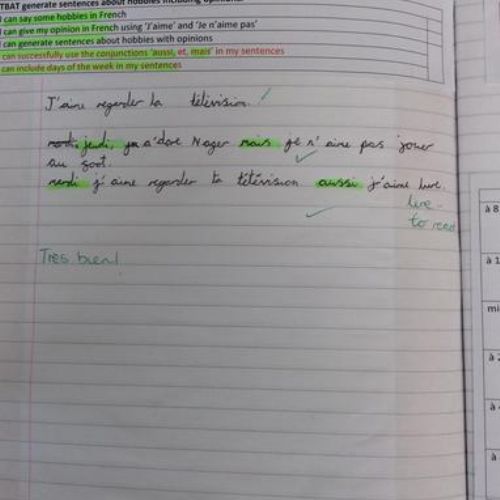 TBAT generate sentences about hobbies including opinions.
I can say some hobbies in French
I can give my opinion in French using 'J'aime' and 'Je n'aime pas'
I can generate sentences about hobbies with opinions
can successfully use the conjunctions 'aussi, et, mais' in my sentences
can include days of the week in my sentences
J'aime regarder la télévision.
mardi, jeudi, a'dore Nager mais je n'aime pas jouer
au foot.
mardi j'aime regarder la télévision aussi j'aime
lire -
to read
Très bien!
à 8
à 1
mi
à 2
à
à